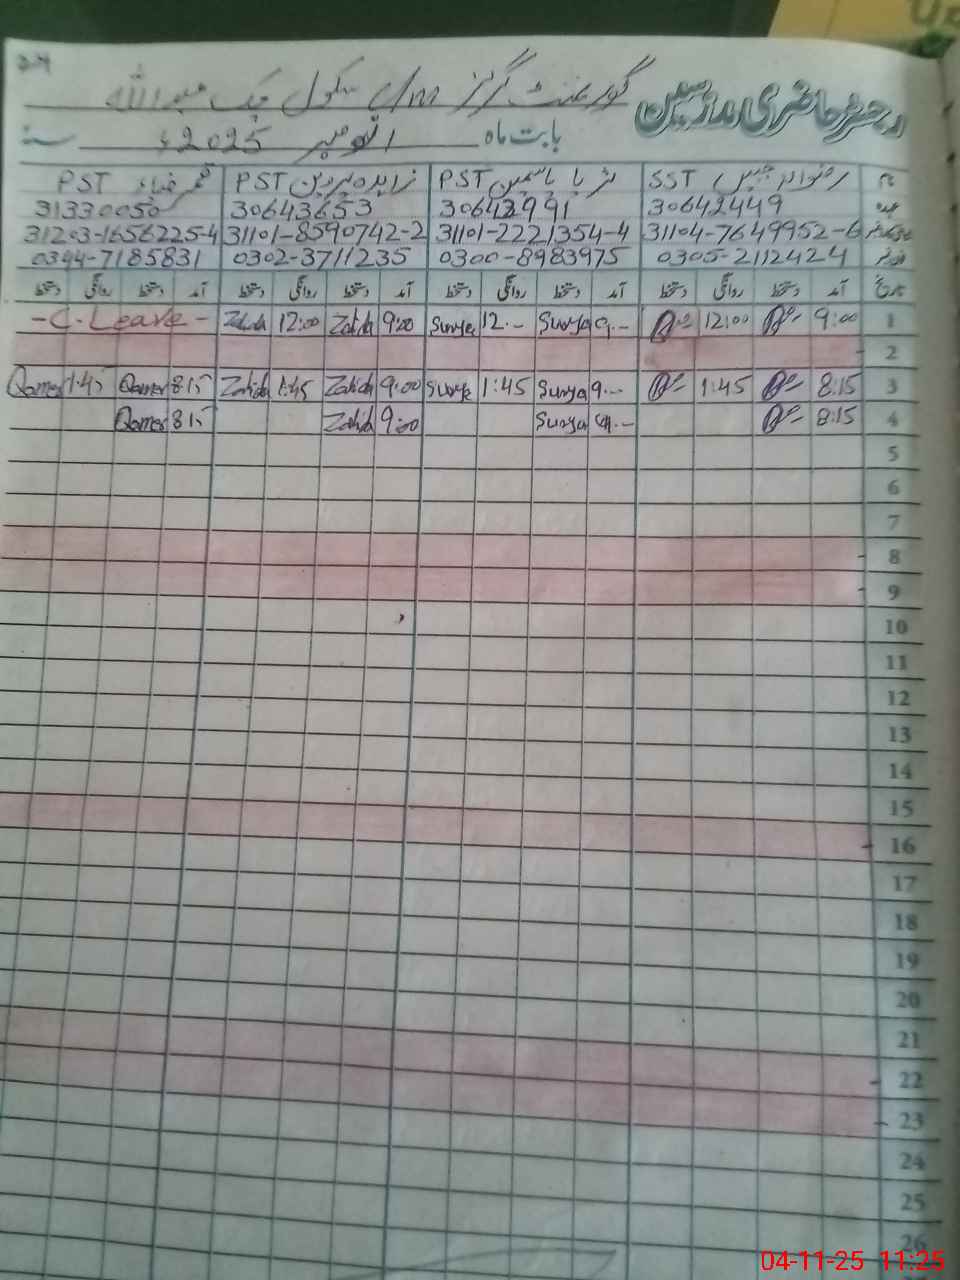 رجسٹر حاضری مدرسین گورنمنٹ گرلز سکول چک عبداللہ
بابت ماہ نومبر 2025ء
نام SST ثریا یاسمین PST زاہدہ پروین PST قمر ضیاء PST
عہدہ 30642449 30642991 30643653 31330050
31104-7649952-6 31101-2221354-4 31101-8590742-2 31203-1656225-4
0305-2112424 0300-8983975 0302-3711235 0344-7185831
تاریخ آمد دستخط روانگی دستخط آمد دستخط روانگی دستخط آمد دستخط روانگی دستخط آمد دستخط روانگی دستخط
1 9:00 12:00 9.-- Surya 12.-- Surya 9:00 Zahida 12:00 Zahida - C. Leave -
2
3 8:15 1:45 9.-- Surya 1:45 Surya 9:00 Zahida 1:45 Zahida 8:15 Qamer 1:45 Qamer
4 8:15 9.-- Surya 9:00 Zahida 8:15 Qamer
5
6
7
8
9
10
11
12
13
14
15
16
17
18
19
20
21
22
23
24
25
26
04-11-25 11:25